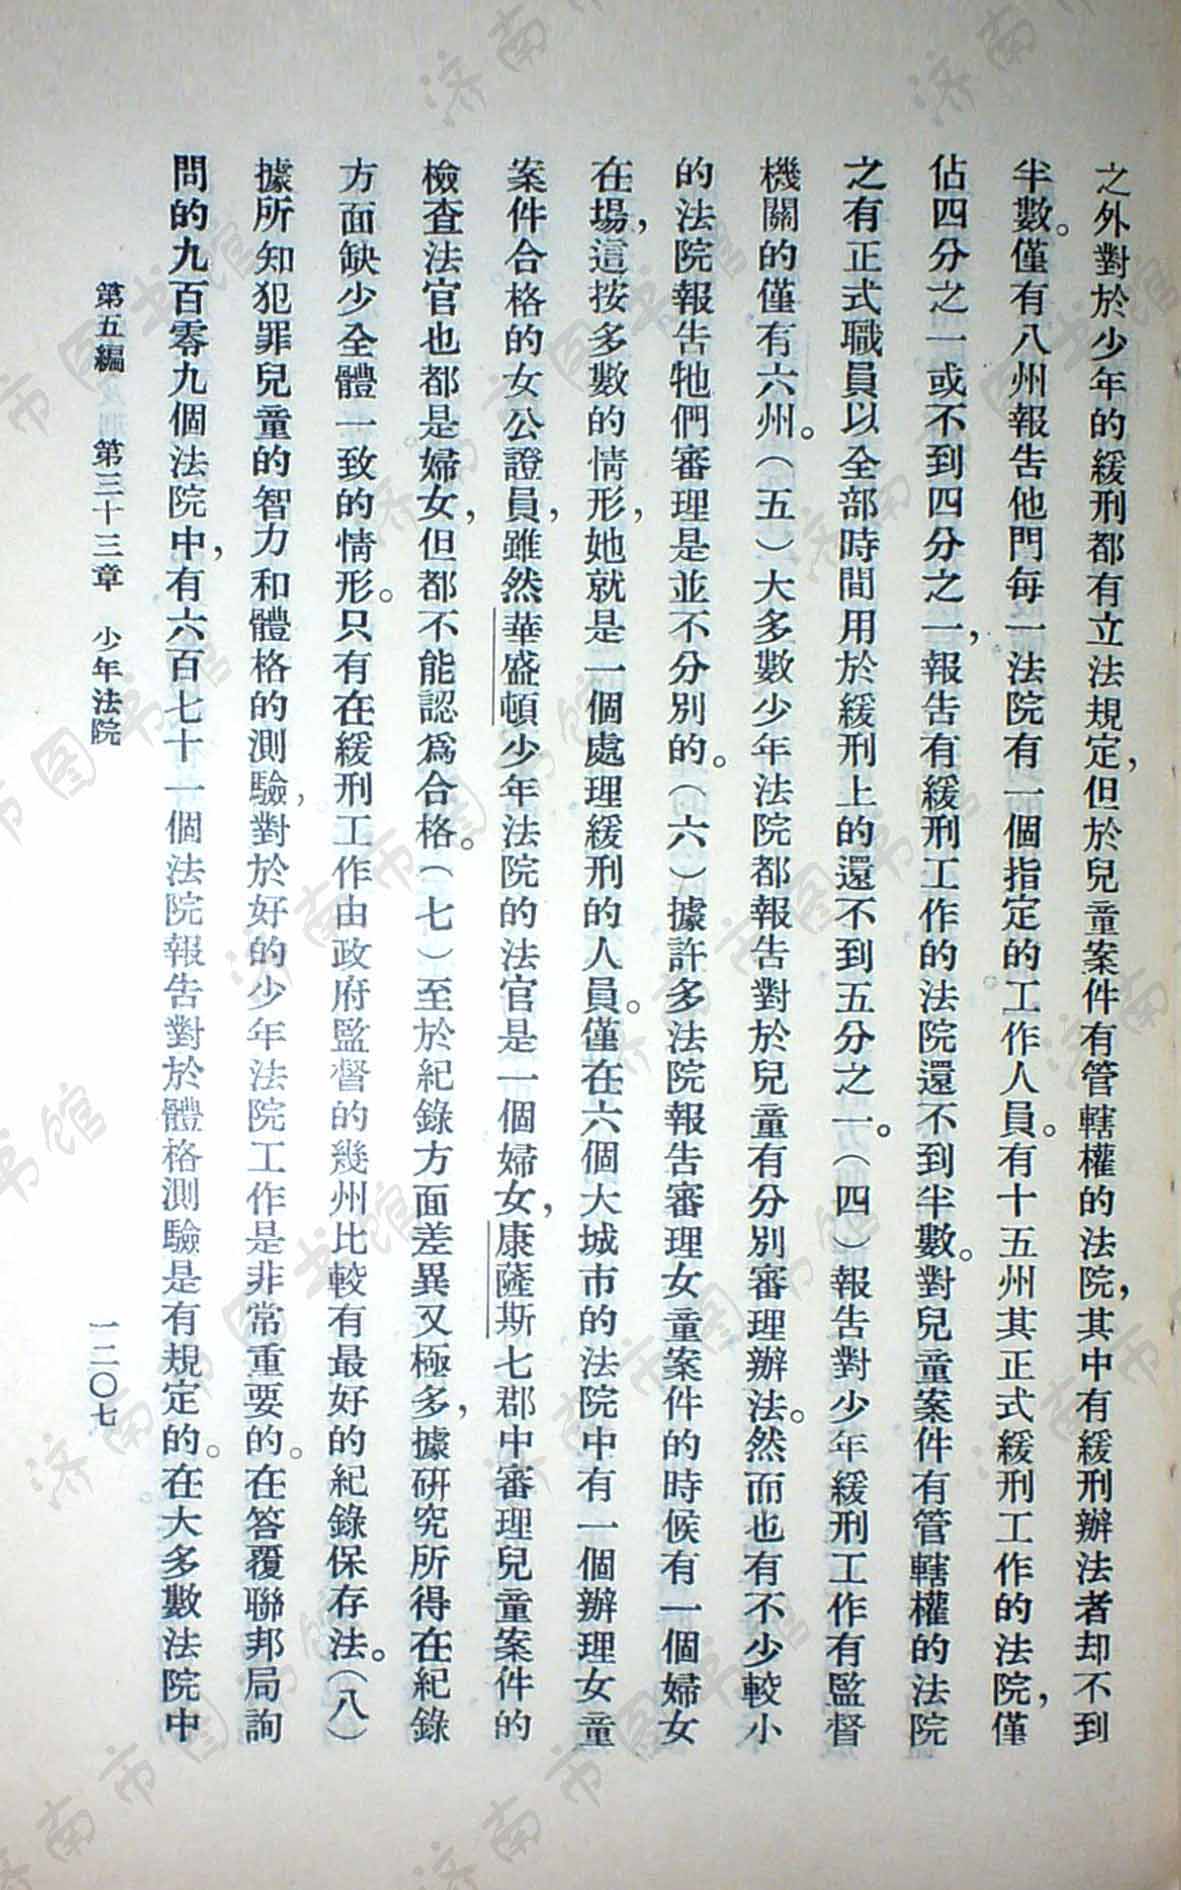 之外對於少年的緩刑都有立法規定，但於兒童案件有管轄權的法院，其中有緩刑辦法者却不到
半數。僅有八州報告他門每一法院有一個指定的工作人員。有十五州其正式緩刑工作的法院，僅
佔四分之一或不到四分之一，報告有緩刑工作的法院還不到半數。對兒童案件有管轄權的法院
之有正式職員以全部時間用於緩刑上的還不到五分之一。（四）報告對少年緩刑工作有監督
機關的僅有六州。（五）大多數少年法院都報告對於兒童有分別審理辦法。然而也有不少較小
的法院報告牠們審理是並不分別的。（六）據許多法院報告審理女童案件的時候有一個婦女
在場，這按多數的情形，她就是一個處理緩刑的人員。僅在六個大城市的法院中有一個辦理女童
案件合格的女公證員，雖然華盛頓少年法院的法官是一個婦女，康薩斯七郡中審理兒童案件的
檢查法官也都是婦女，但都不能認爲合格。（七）至於紀錄方面差異又極多，據研究所得在紀錄
方面缺少全體一致的情形。只有在緩刑工作由政府監督的幾州比較有最好的紀錄保存法。（八）
據所知犯罪兒童的智力和體格的測驗，對於好的少年法院工作是非常重要的。在答覆聯邦局詢
問的九百零九個法院中，有六百七十一個法院報告對於體格測驗是有規定的。在大多數法院中
第五編 第三十三章 少年法院 一二〇七
濟南市图书馆